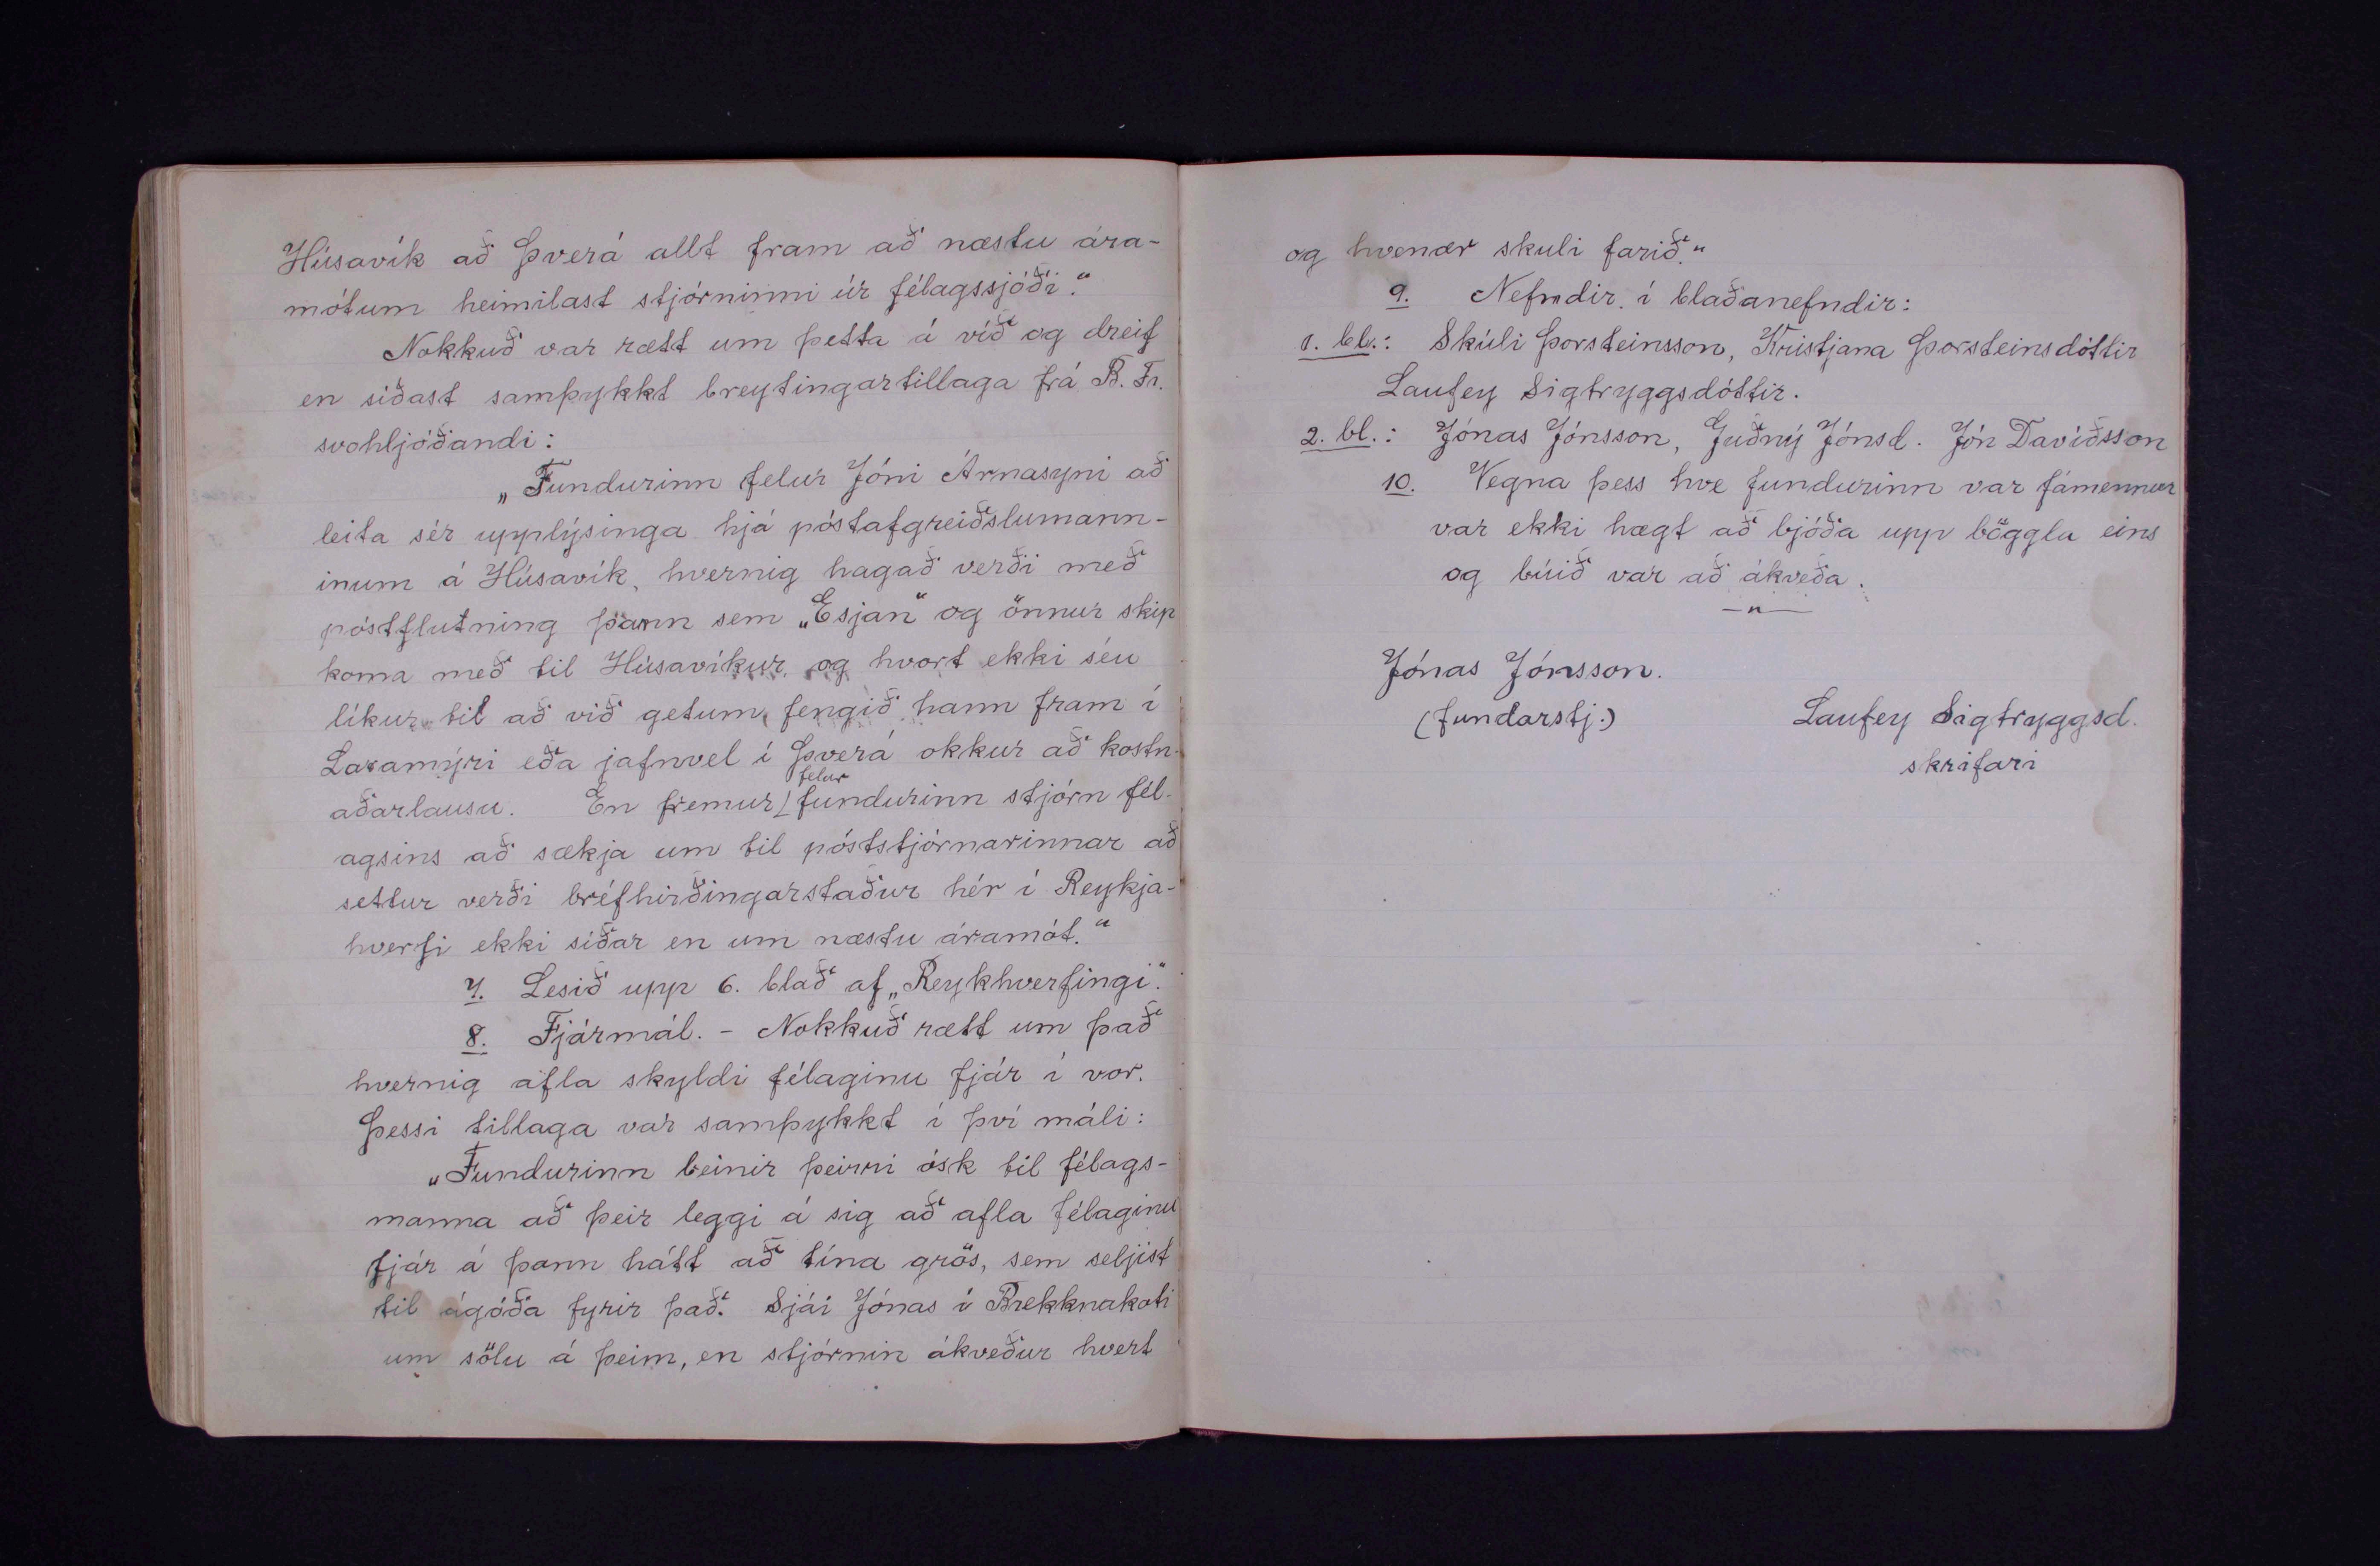 Húsavík að Þverá allt fram að næstu ára-
mótum heimilast stjórninni úr félagssjóði."
Nokkuð var rætt um þetta á víð og dreif
en síðast samþykkt breytingartillaga frá B. Fr.
svohljóðandi:
„Fundurinn felur Jóni Árnasyni að
leita sér upplýsinga hjá póstafgreiðslumann-
inum á Húsavík, hvernig hagað verði með
póstflutning þann sem „Esjan" og önnur skip
koma með til Húsavíkur, og hvort ekki séu
líkur til að við getum fengið hann fram í
Laxamýri eða jafnvel í Þverá okkur að kostn-
felur
aðarlausu. En fremur fundurinn stjórn fél-
agsins að sækja um til póststjórnarinnar að
settur verði bréfhirðingarstaður hér í Reykja-
hverfi ekki síðar en um næstu áramót."
7. Lesið upp 6. blað af „Reykhverfingi".
8. Fjármál. - Nokkuð rætt um það
hvernig afla skyldi félaginu fjár í vor.
Þessi tillaga var samþykkt í því máli:
„Fundurinn beinir þeirri ósk til félags-
manna að þeir leggi á sig að afla félaginu
fjár á þann hátt að tína grös, sem seljist
til ágóða fyrir það. Sjái Jónas í Brekknakoti
um sölu á þeim, en stjórnin ákveður hvert
og hvenær skuli farið."
9. Nefndir í blaðanefndir:
1. bl.: Skúli Þorsteinsson, Kristjana Þorsteinsdóttir
Laufey Sigtryggsdóttir.
2. bl.: Jónas Jónsson, Guðný Jónsd. Jón Davíðsson
10. Vegna þess hve fundurinn var fámennur
var ekki hægt að bjóða upp böggla eins
og búið var að ákveða.
—"—
Jónas Jónsson.
(fundarstj.)
Laufey Sigtryggsd.
skrifari